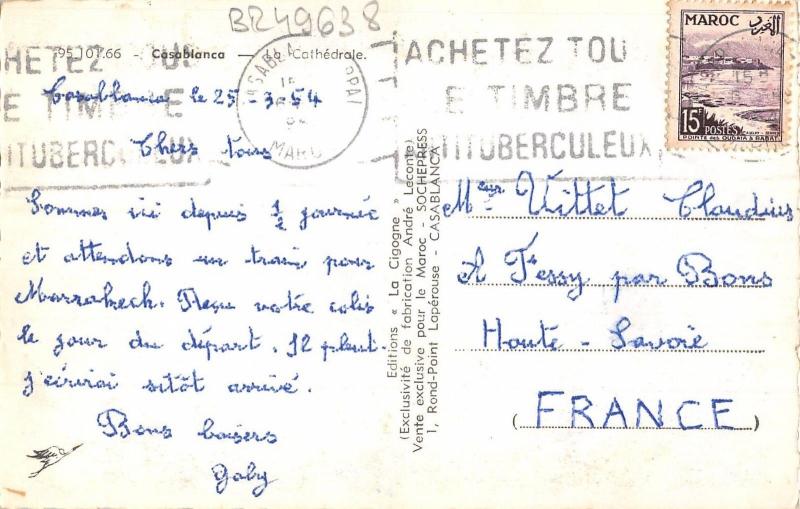 BR49638
95.101.66 - Casablanca - La Cathédrale.
ACHETEZ TOUS
LE TIMBRE
ANTITUBERCULEUX
CASABLANCA
MAROC
Casablanca le 25-3-54
Chers tous
Sommes ici depuis 1/2 journée
et attendons un train pour
Marrakech. Reçu votre colis
le jour du départ. Il pleut.
J'écrirai sitôt arrivé.
Bons baisers
Gaby
Editions « La Cigogne »
(Exclusivité de fabrication André Leconte)
Vente exclusive pour le Maroc - SOCHEPRESS
1, Rond-Point Lapérouse - CASABLANCA
ACHETEZ TOU
E TIMBRE
TITUBERCULEUX
MAROC
15F POSTES
POINTE DES OUDAIA A RABAT
Meur Vittet Claudius
A Fessy par Bons
Haute-Savoie
(FRANCE)